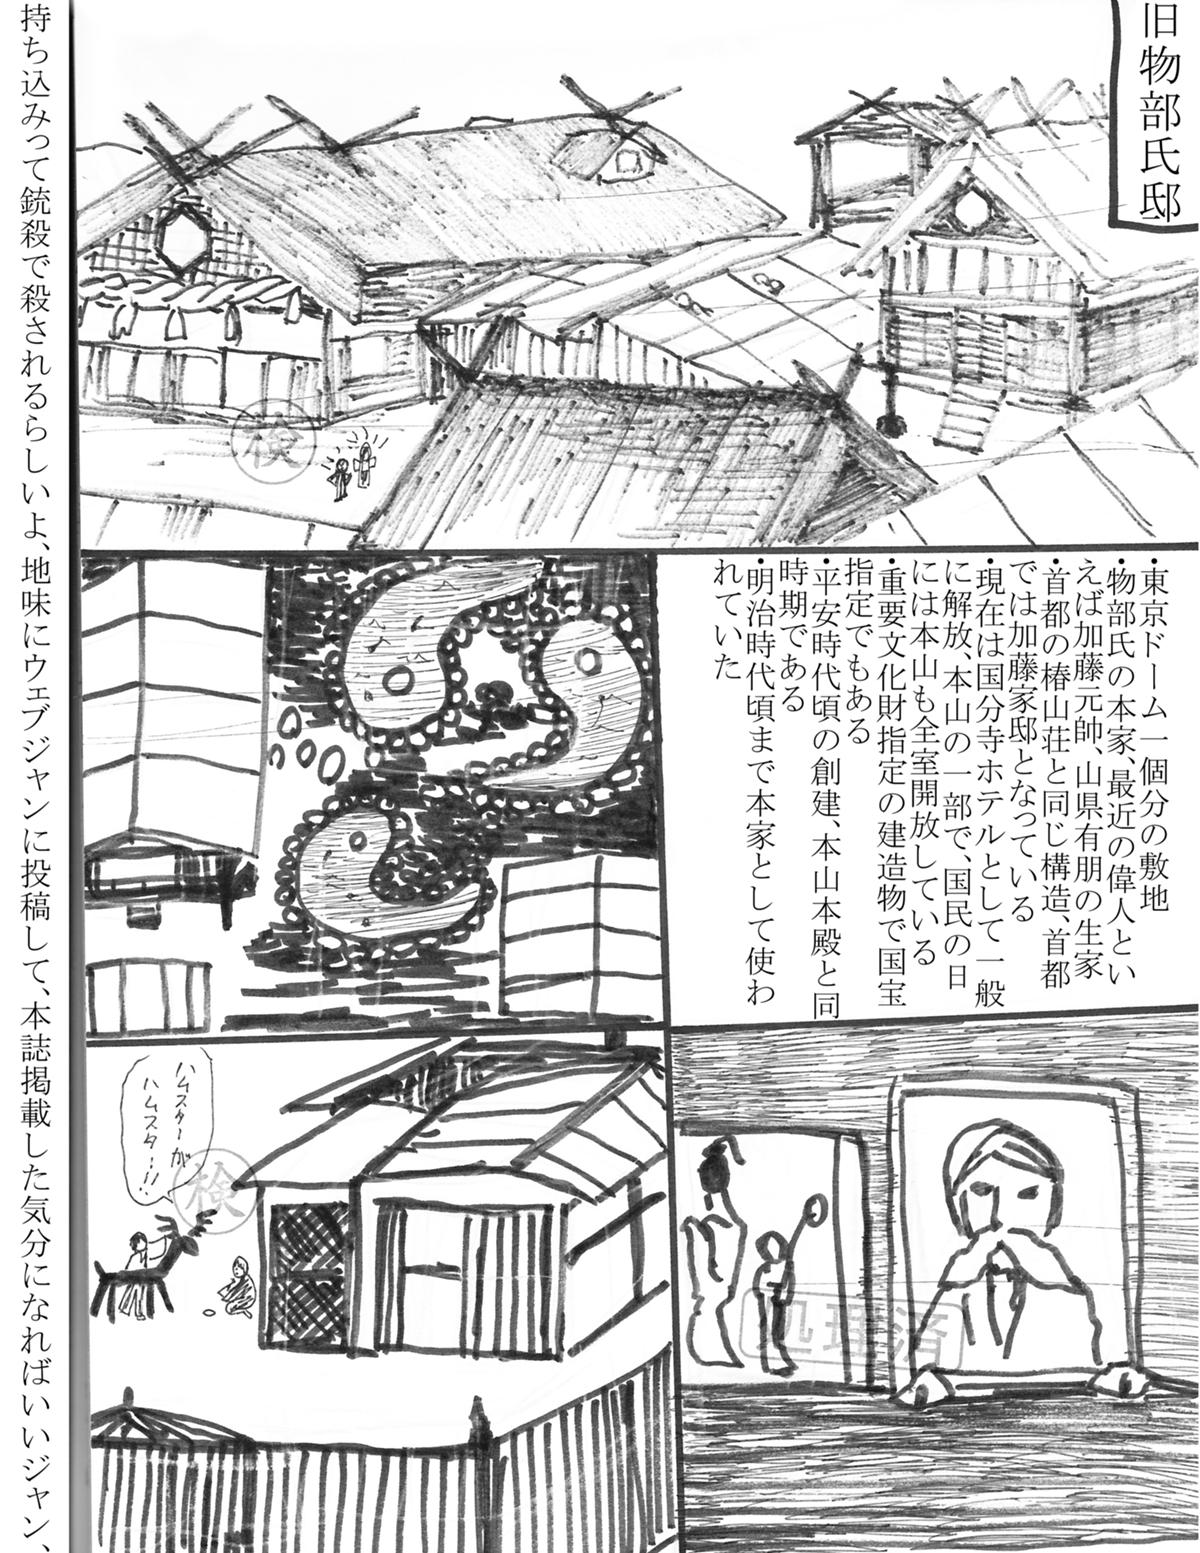 旧物部氏邸
・東京ドーム一個分の敷地
・物部氏の本家、最近の偉人とい
えば加藤元帥、山県有朋の生家
・首都の椿山荘と同じ構造、首都
では加藤家邸となっている
・現在は国分寺ホテルとして一般
に解放、本山の一部で、国民の日
には本山も全室開放している
・重要文化財指定の建造物で国宝
指定でもある
・平安時代頃の創建、本山本殿と同
時期である
・明治時代頃まで本家として使わ
れていた
ハムスターが
ハムスター!!
検
検
処理済
持ち込みって銃殺で殺されるらしいよ、地味にウェブジャンに投稿して、本誌掲載した気分になればいいジャン、